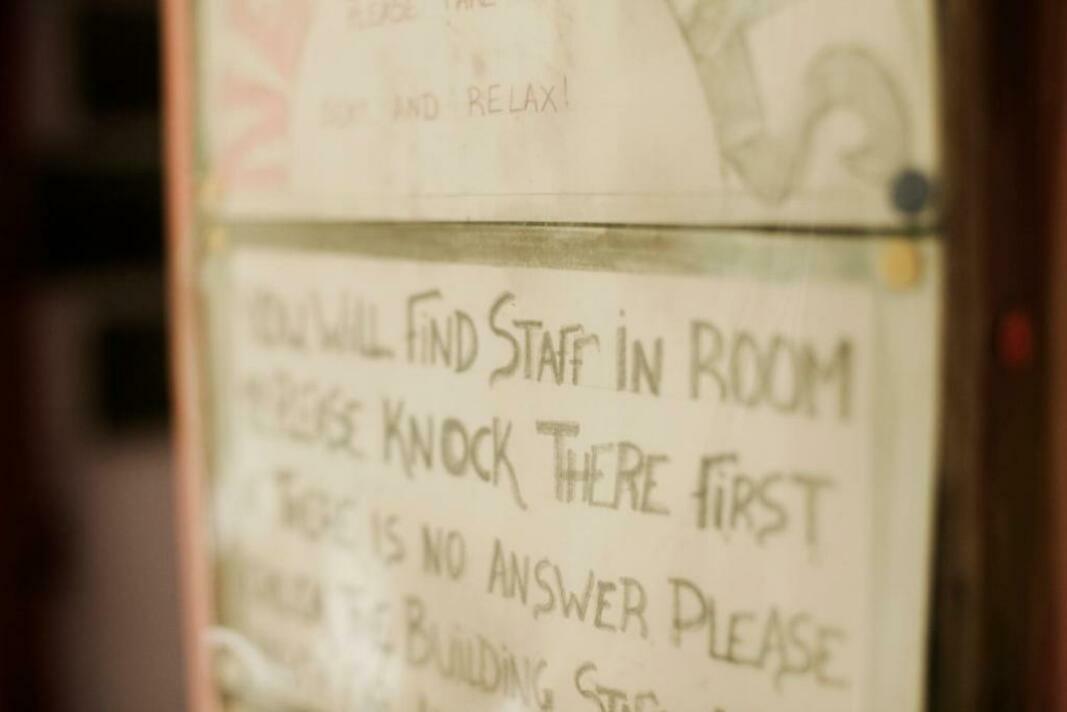 PLEASE TAKE
AND RELAX!
YOU WILL FIND STAFF IN ROOM
PLEASE KNOCK THERE FIRST
THERE IS NO ANSWER PLEASE
THE BUILDING